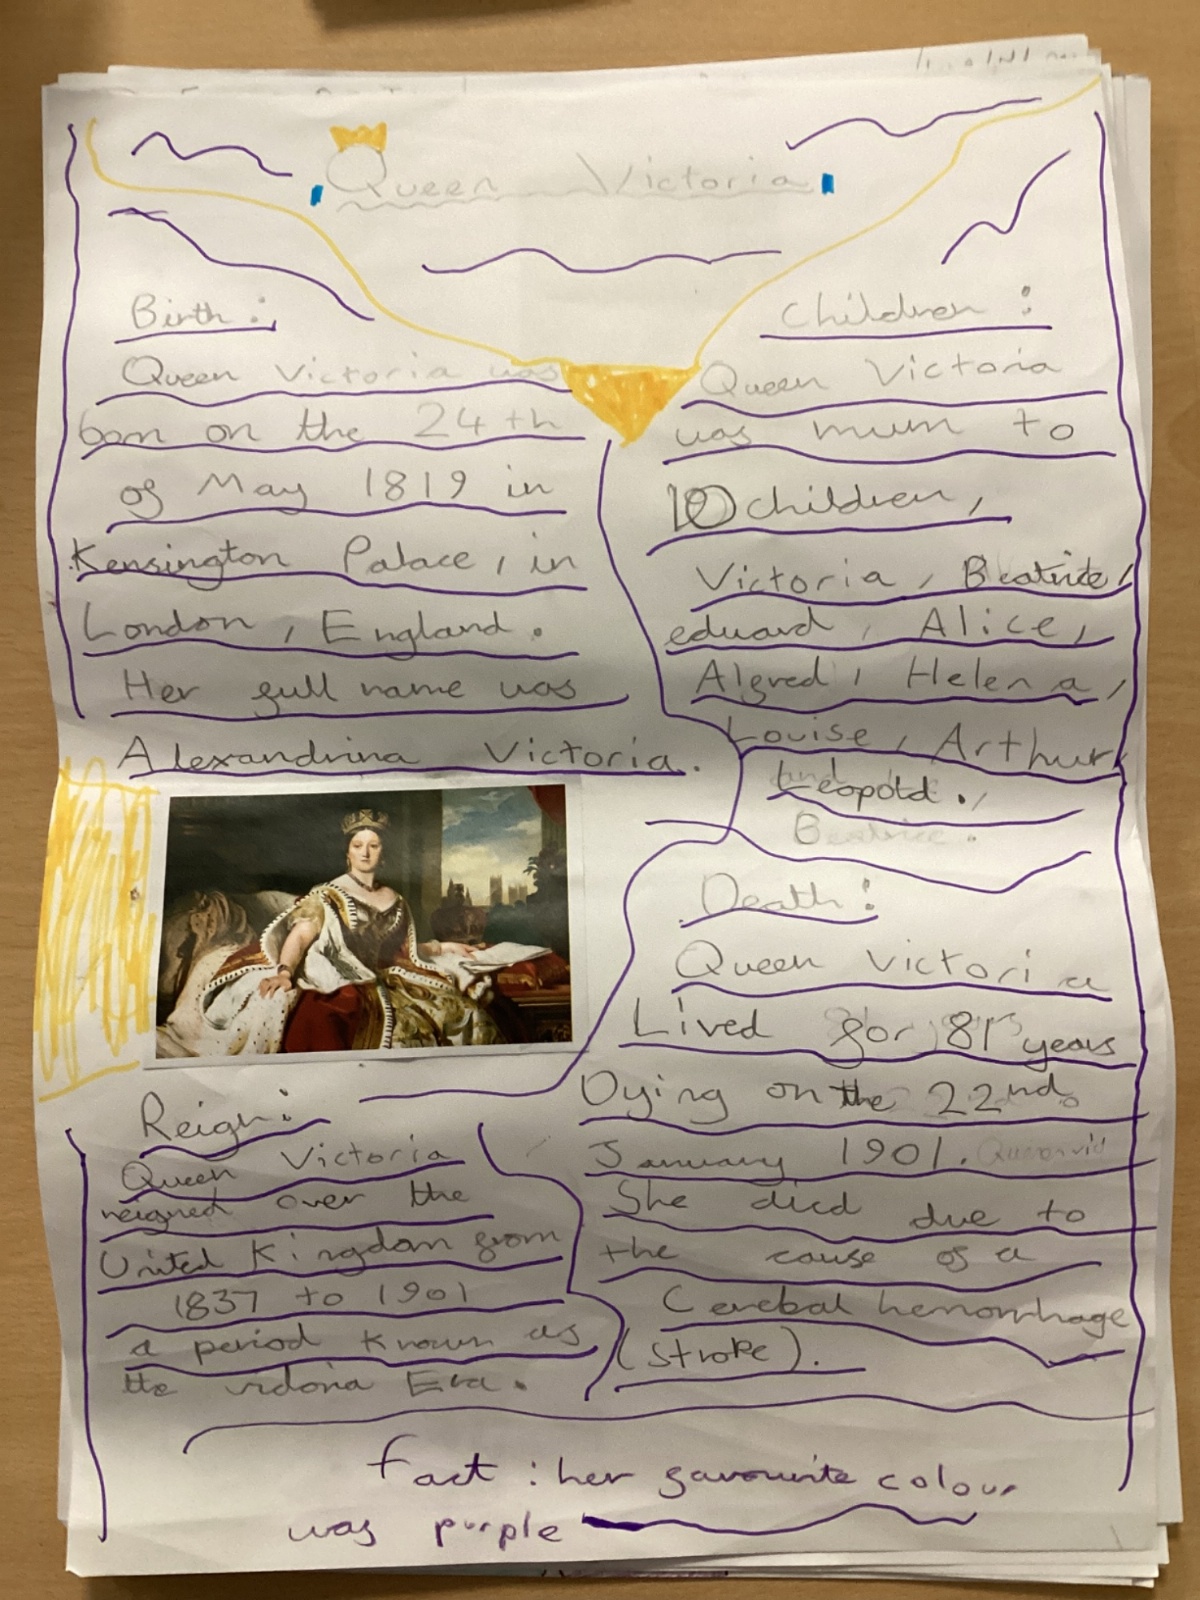 Queen Victoria
Birth :
Queen Victoria was
born on the 24th
of May 1819 in
Kensington Palace, in
London, England.
Her full name was
Alexandrina Victoria.
Children :
Queen Victoria
was mum to
children,
Victoria, Beatrice,
eduard, Alice,
Alfred, Helena,
Louise, Arthur
and
Leopold.
Beatrice.
Death :
Queen Victoria
Lived for 81 years
Dying on the 22nd
January 1901.
She died due to
the cause of a
Cerebal hemorrhage
(stroke).
Reign :
Queen Victoria
reigned over the
United Kingdom from
1837 to 1901
a period known as
the victoria Era.
fact : her favourite colour
was purple